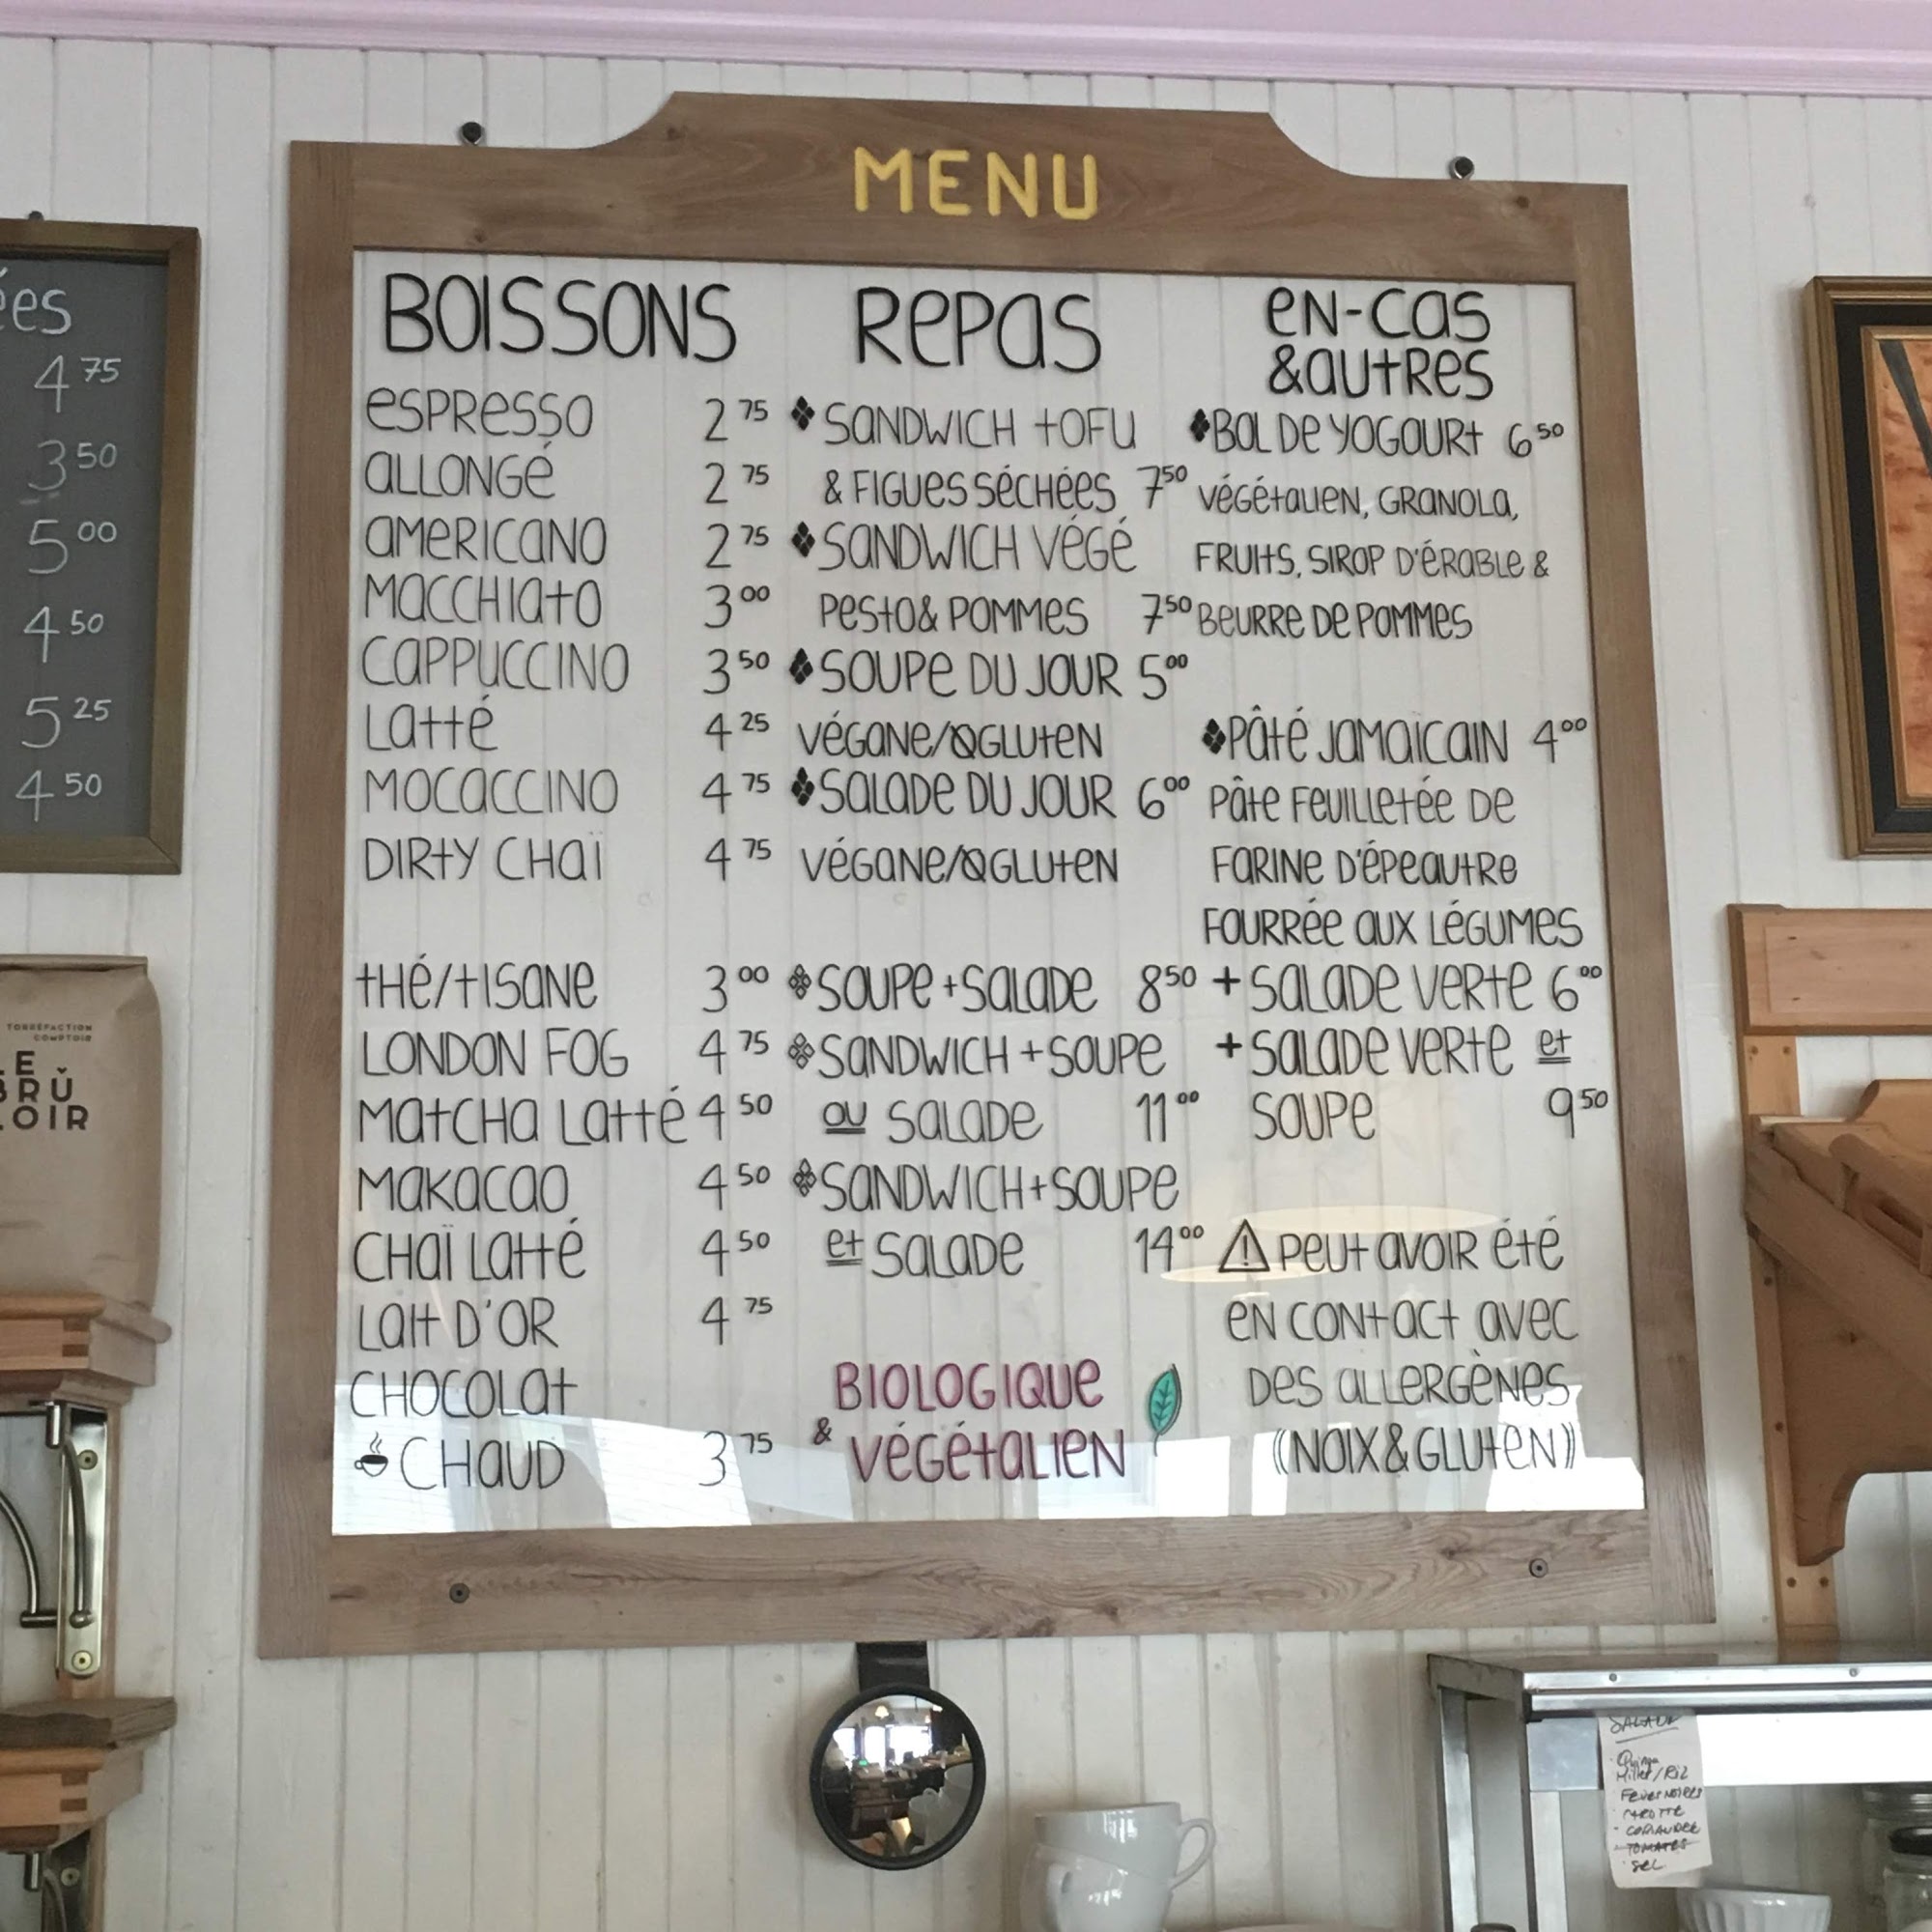 ées
4 75
3 50
5 00
4 50
5 25
4 50
TORRÉFACTION
COMPTOIR
LE
BRÛ
LOIR
MENU
BOISSONS
ESPRESSO 2 75
ALLONGÉ 2 75
AMERICANO 2 75
MACCHIATO 3 00
CAPPUCCINO 3 50
LATTÉ 4 25
MOCACCINO 4 75
DIRTY CHAÏ 4 75
THÉ/TISANE 3 00
LONDON FOG 4 75
MATCHA LATTÉ 4 50
MAKACAO 4 50
CHAÏ LATTÉ 4 50
LAIT D'OR 4 75
CHOCOLAT
CHAUD 3 75
REPAS
SANDWICH TOFU
& FIGUES SÉCHÉES 7 50
SANDWICH VÉGÉ
PESTO & POMMES 7 50
SOUPE DU JOUR 5 00
VÉGANE/Ø GLUTEN
SALADE DU JOUR 6 00
VÉGANE/Ø GLUTEN
SOUPE + SALADE 8 50
SANDWICH + SOUPE
OU SALADE 11 00
SANDWICH + SOUPE
ET SALADE 14 00
BIOLOGIQUE
& VÉGÉTALIEN
EN-CAS
& AUTRES
BOL DE YOGOURT 6 50
VÉGÉTALIEN, GRANOLA,
FRUITS, SIROP D'ÉRABLE &
BEURRE DE POMMES
PÂTÉ JAMAÏCAIN 4 00
PÂTE FEUILLETÉE DE
FARINE D'ÉPEAUTRE
FOURRÉE AUX LÉGUMES
+ SALADE VERTE 6 00
+ SALADE VERTE ET
SOUPE 9 50
⚠ PEUT AVOIR ÉTÉ
EN CONTACT AVEC
DES ALLERGÈNES
((NOIX & GLUTEN))
SALADE
Millet/Riz
CAROTTE
- CORIANDRE
- TOMATES
SEL